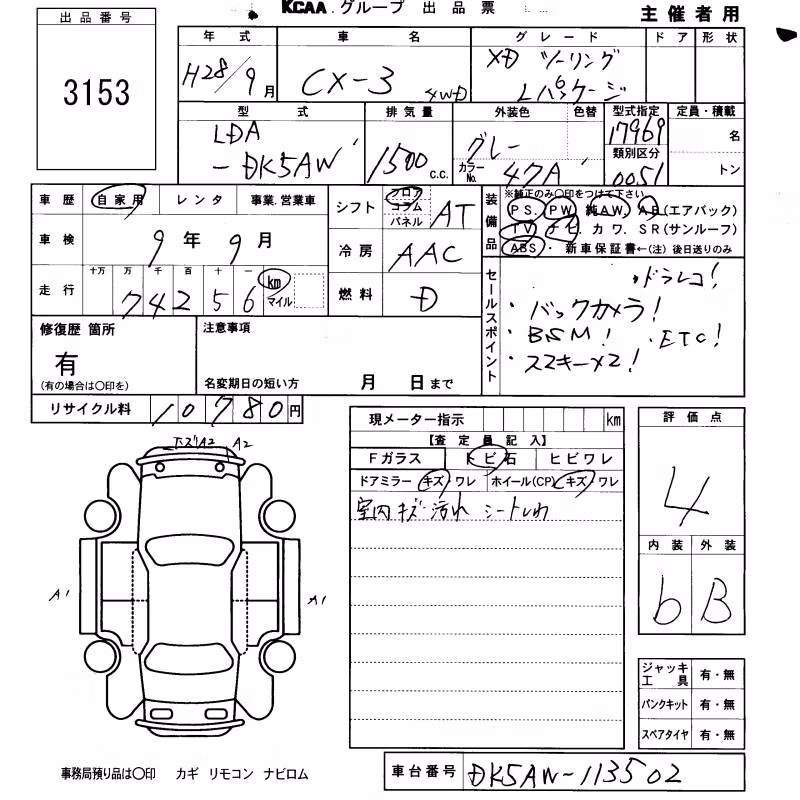 KCAA.グループ 出品票
主催者用
出品番号
3153
年式 車名 グレード ドア 形状
H28/9月 CX-3 4WD XD ツーリング
Lパッケージ
型式 排気量 外装色 色替 型式指定 定員・積載
LDA 17969 名
-DK5AW 1500 c.c. グレー 類別区分
カラーNo. 47A 0051 トン
車歴 自家用 レンタ 事業.営業車
シフト フロア コラム パネル AT
装備品 ※純正のみ〇印をつけて下さい
PS. PW. 純AW. AB(エアバック)
TV. ナビ. カワ. SR(サンルーフ)
ABS・ 新車保証書←(注)後日送りのみ
車検 9年9月
冷房 AAC
走行 十万 万 千 百 十 一
74256 km マイル
燃料 D
セールスポイント
・ドラレコ!
・バックカメラ!
・BSM! ・ETC!
・スマキー×2!
修復歴 箇所 注意事項
有
(有の場合は〇印を) 名変期日の短い方 月 日まで
リサイクル料 10780円
現メーター指示 km
【査定員記入】
Fガラス トビ石 ヒビワレ
ドアミラー キズ・ワレ ホイール(CP) キズ・ワレ
室内キズ・汚れ シートしわ
評価点
4
内装 外装
b B
A2
A1 A1
ジャッキ工具 有・無
パンクキット 有・無
スペアタイヤ 有・無
事務局預り品は〇印 カギ リモコン ナビロム
車台番号 DK5AW-113502